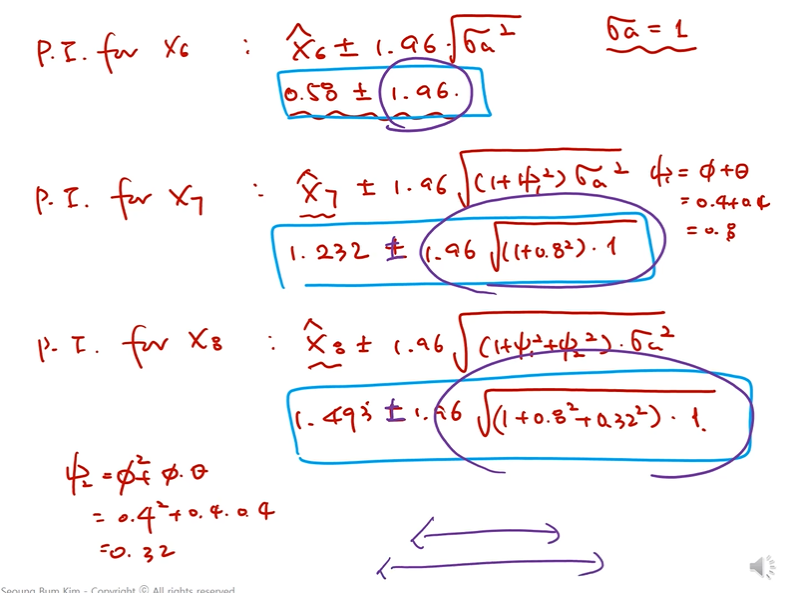 P.I. for X₆ : X̂₆ ± 1.96 √σa² σa = 1
0.58 ± 1.96.
P.I. for X₇ : X̂₇ ± 1.96 √(1+ψ₁²) σa² ψ₁ = φ+θ
= 0.4+0.4
= 0.8
1.232 ± 1.96 √(1+0.8²) · 1
P.I. for X₈ : X̂₈ ± 1.96 √(1+ψ₁²+ψ₂²) · σa²
1.493 ± 1.96 √(1+0.8²+0.32²) · 1.
ψ₂ = φ² + φ·θ
= 0.4²+0.4·0.4
= 0.32
Seoung Bum Kim - Copyright ⓒ All rights reserved